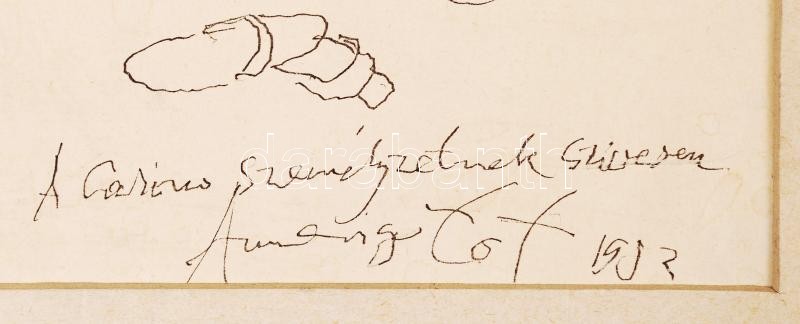 A Casino személyzetnek szivesen
Amerigo Tot 1982
darabanth